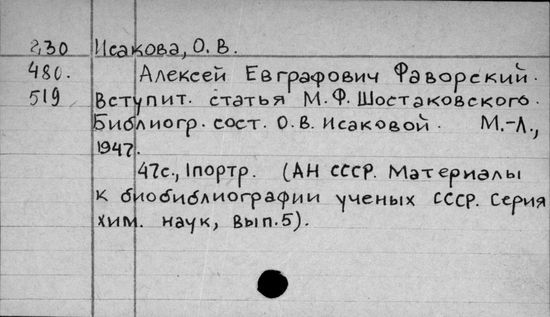 2,30 Исакова, О.В.
480. Алексей Евграфович Фаворский.
519 Вступит. статья М.Ф. Шостаковского.
Библиогр. сост. О.В. Исаковой. М.-Л.,
1947.
47с., 1портр. (АН СССР. Материалы
к биобиблиографии ученых СССР. Серия
хим. наук, вып.5).